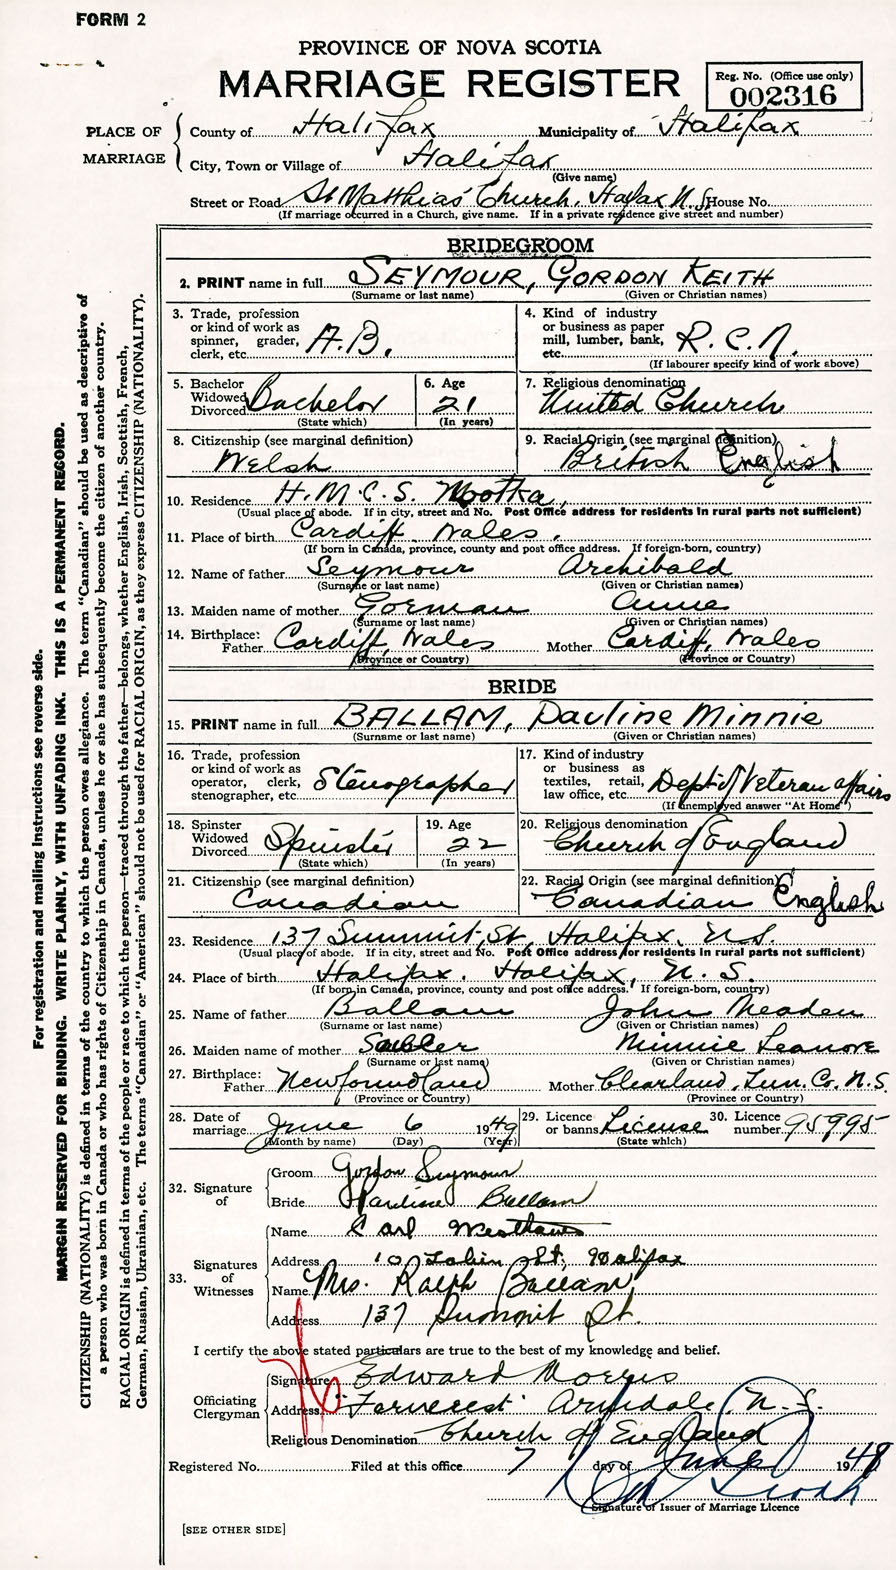 FORM 2
PROVINCE OF NOVA SCOTIA
MARRIAGE REGISTER
Reg. No. (Office use only)
002316
PLACE OF MARRIAGE
County of Halifax Municipality of Halifax
City, Town or Village of Halifax
(Give name)
Street or Road St Matthias' Church, Halifax N.S. House No.
(If marriage occurred in a Church, give name. If in a private residence give street and number)
BRIDEGROOM
2. PRINT name in full SEYMOUR, GORDON KEITH
(Surname or last name) (Given or Christian names)
3. Trade, profession or kind of work as spinner, grader, clerk, etc. A.B.
4. Kind of industry or business as paper mill, lumber, bank, etc. R.C.N.
(If labourer specify kind of work above)
5. Bachelor Widowed Divorced Bachelor
(State which)
6. Age 21
(In years)
7. Religious denomination United Church
8. Citizenship (see marginal definition) Welsh
9. Racial Origin (see marginal definition) British English
10. Residence H.M.C.S. Nootka,
(Usual place of abode. If in city, street and No. Post Office address for residents in rural parts not sufficient)
11. Place of birth Cardiff, Wales.
(If born in Canada, province, county and post office address. If foreign-born, country)
12. Name of father Seymour Archibald
(Surname or last name) (Given or Christian names)
13. Maiden name of mother Gorman Anne
(Surname or last name) (Given or Christian names)
14. Birthplace: Father Cardiff, Wales Mother Cardiff, Wales
(Province or Country) (Province or Country)
BRIDE
15. PRINT name in full BALLAM, Pauline Minnie
(Surname or last name) (Given or Christian names)
16. Trade, profession or kind of work as operator, clerk, stenographer, etc. Stenographer
17. Kind of industry or business as textiles, retail, law office, etc. Dept of Veteran affairs
(If unemployed answer "At Home")
18. Spinster Widowed Divorced Spinster
(State which)
19. Age 22
(In years)
20. Religious denomination Church of England
21. Citizenship (see marginal definition) Canadian
22. Racial Origin (see marginal definition) Canadian English
23. Residence 137 Summit St, Halifax, N.S.
(Usual place of abode. If in city, street and No. Post Office address for residents in rural parts not sufficient)
24. Place of birth Halifax. Halifax, N.S.
(If born in Canada, province, county and post office address. If foreign-born, country)
25. Name of father Ballam John Meaden
(Surname or last name) (Given or Christian names)
26. Maiden name of mother Minnie Leanore
(Surname or last name) (Given or Christian names)
27. Birthplace: Father Newfoundland Mother Clearland, Lun. Co. N.S.
(Province or Country) (Province or Country)
28. Date of marriage June 6 1949
(Month by name) (Day) (Year)
29. Licence or banns License
(State which)
30. Licence number 95995
32. Signature of
Groom Gordon Seymour
Bride Pauline Ballam
33. Signatures of Witnesses
Name Carl
Address 10 St, Halifax
Name Mrs. Ralph Ballam
Address 137 Summit St.
I certify the above stated particulars are true to the best of my knowledge and belief.
Officiating Clergyman
Signature Edward Morris
Address Armdale, N.S.
Religious Denomination Church of England
Registered No. Filed at this office 7 day of June 1949
Signature of Issuer of Marriage Licence
[SEE OTHER SIDE]
For registration and mailing instructions see reverse side.
MARGIN RESERVED FOR BINDING. WRITE PLAINLY, WITH UNFADING INK. THIS IS A PERMANENT RECORD.
CITIZENSHIP (NATIONALITY) is defined in terms of the country to which the person owes allegiance. The term "Canadian" should be used as descriptive of
a person who was born in Canada or who has rights of Citizenship in Canada, unless he or she has subsequently become the citizen of another country.
RACIAL ORIGIN is defined in terms of the people or race to which the person—traced through the father—belongs, whether English, Irish, Scottish, French,
German, Russian, Ukrainian, etc. The terms "Canadian" or "American" should not be used for RACIAL ORIGIN, as they express CITIZENSHIP (NATIONALITY).